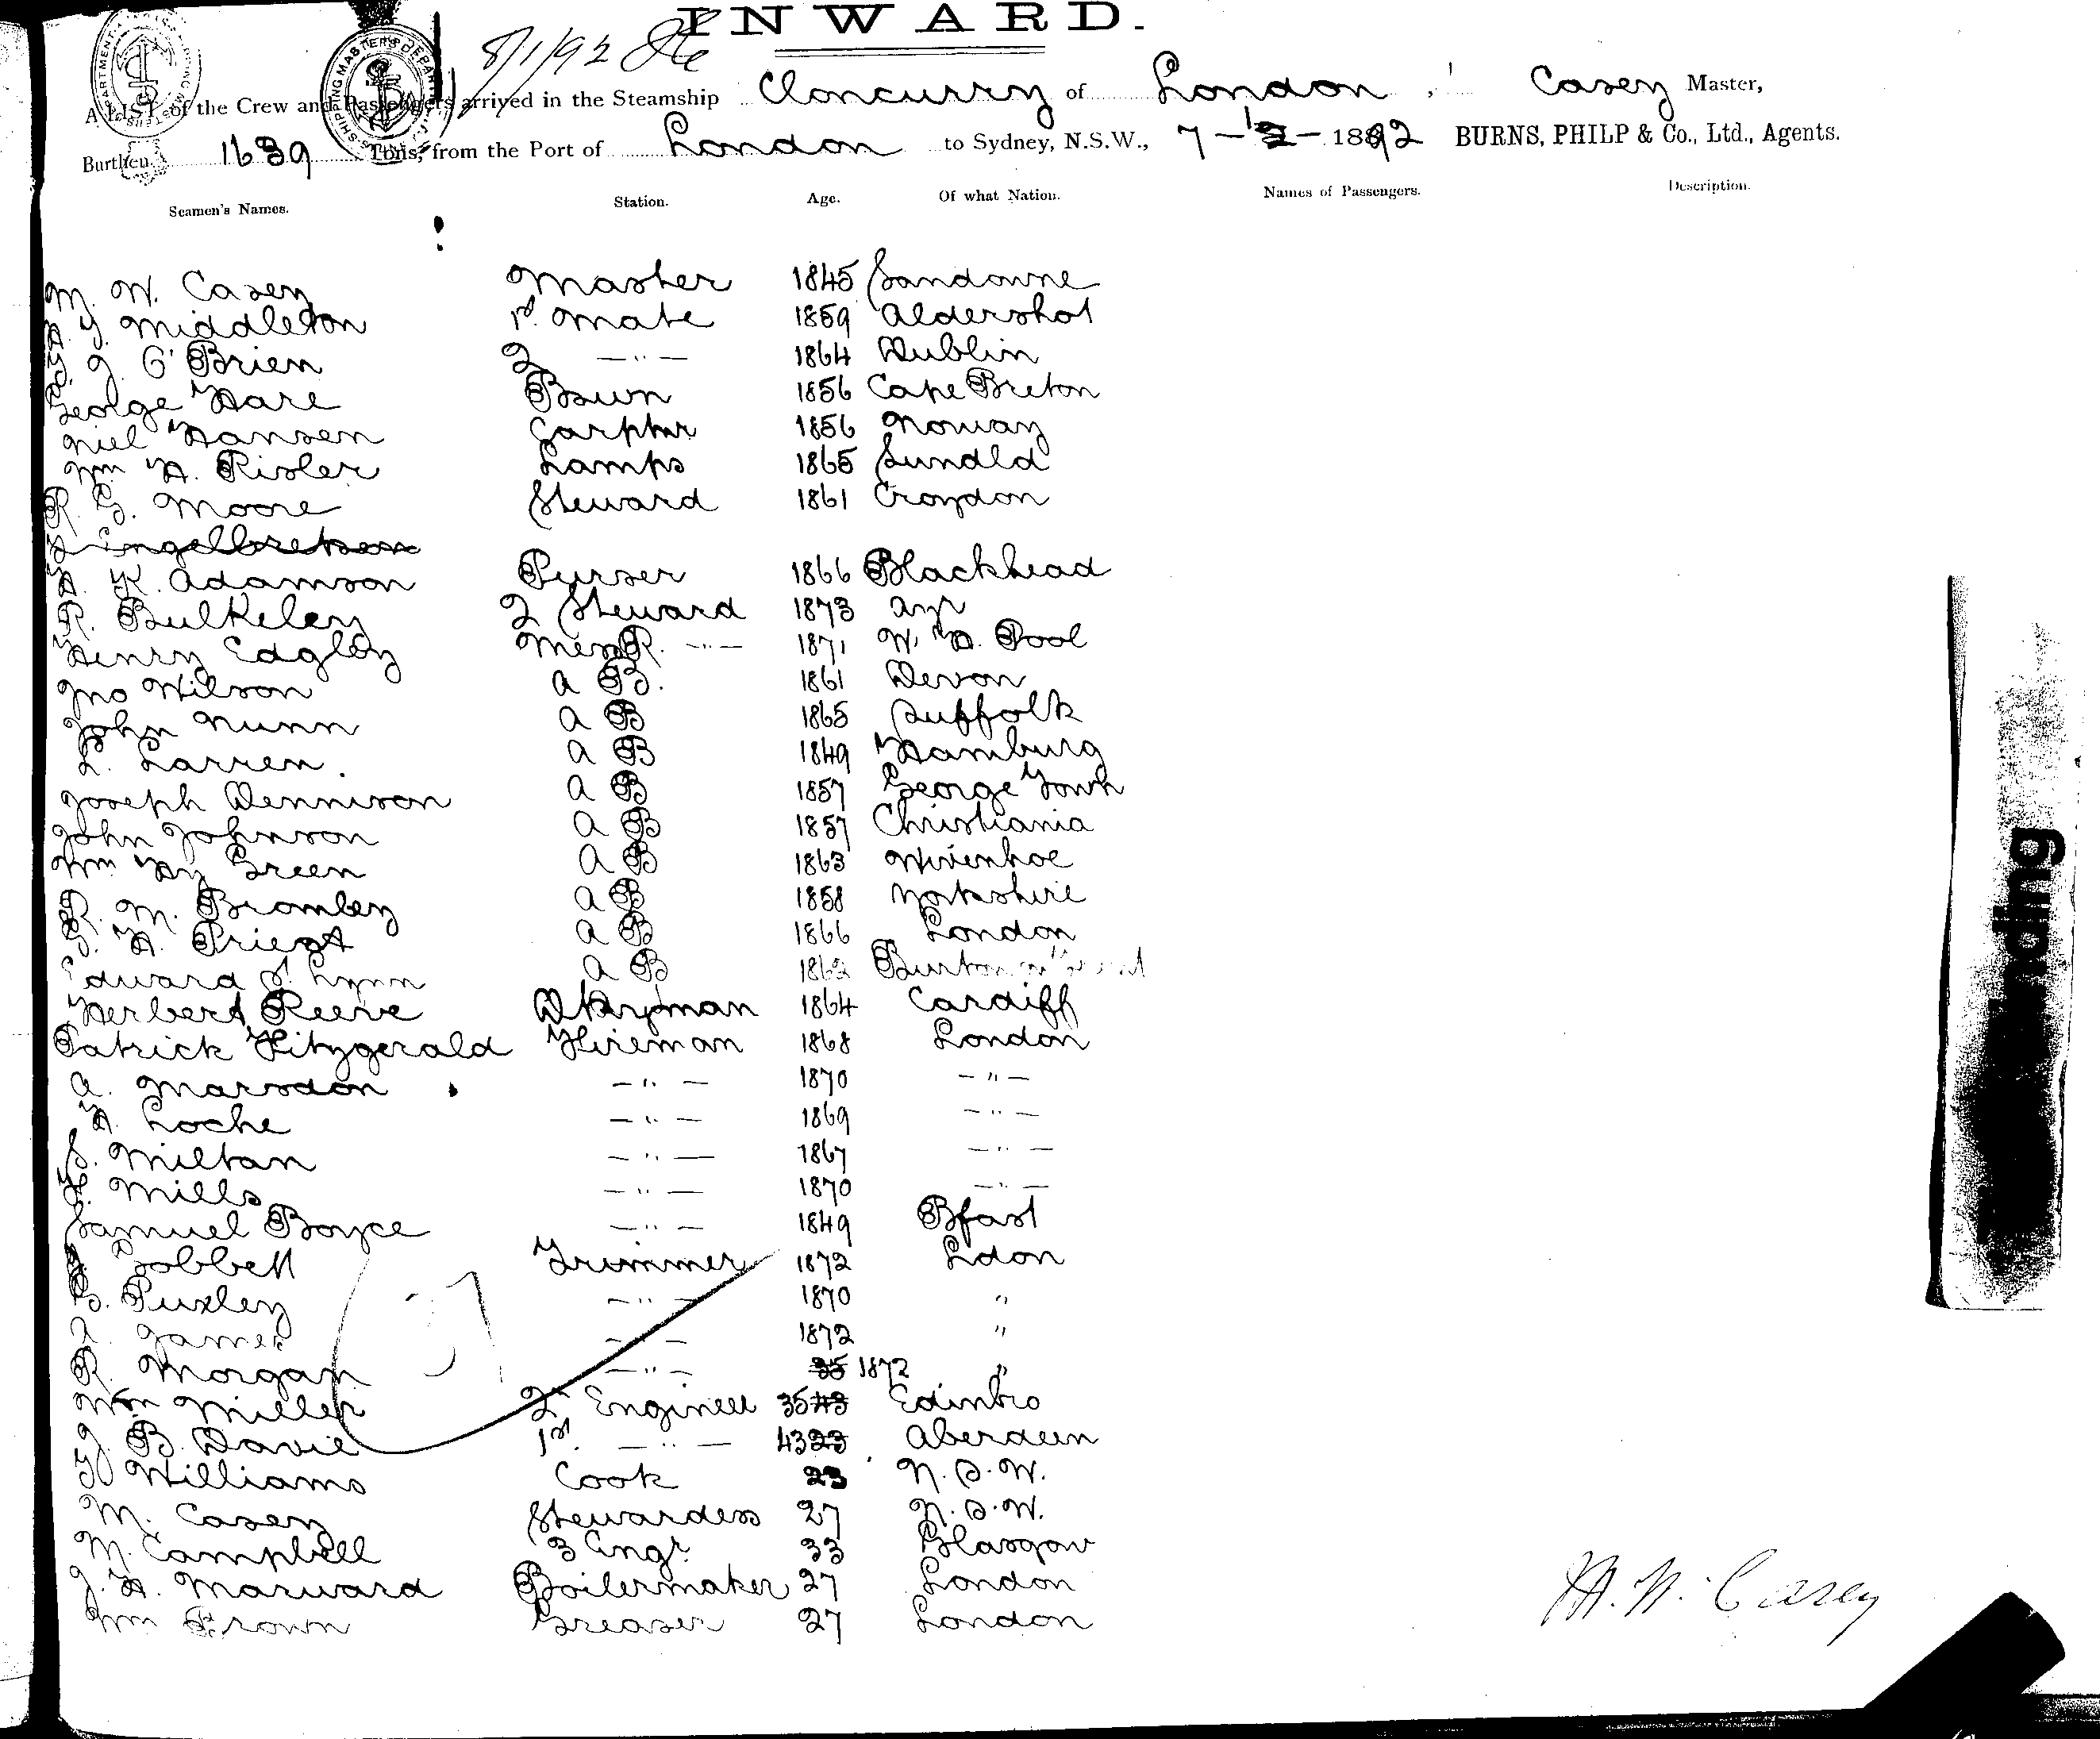 INWARD.
8/1/92
A LIST of the Crew and Passengers arrived in the Steamship Cloncurry of London, Casey Master,
Burthen 1639 Tons, from the Port of London to Sydney, N.S.W., 7 - 1 - 1892 BURNS, PHILP & Co., Ltd., Agents.
Seamen's Names. Station. Age. Of what Nation. Names of Passengers. Description.
M. W. Casey Master 1845 Sandowne
Middleton 1st. Mate 1859 Aldershot
J. O'Brien 2 —"— 1864 Dublin
George Hare Bswn 1856 Cape Breton
Niel Hansen Carpntr 1856 Norway
Wm H. Risler Lamps 1865 Sundld
R. G. Moore Steward 1861 Croydon
Engelbretsen
K. Adamson Purser 1866 Blackhead
R. Bulkeley 2 Steward 1873 Ayr
Henry Edgley MessR. —"— 1871 W. H. Pool
Jno Wilson A B. 1861 Devon
John Nunn A B 1865 Suffolk
L. Larren. A B 1849 Hamburg
Joseph Dennison A B 1857 George Town
John Johnson A B 1857 Christiania
Wm Hy Green A B 1863 Wivenhoe
R. M. Bromley A B 1858 Yorkshire
G. H. Priest A B 1866 London
Edward S. Lynn A B 1862 Burton on Trent
Herbert Reeve Dkypman 1864 Cardiff
Patrick Fitzgerald Fireman 1868 London
A. Marsdon —"— 1870 —"—
H. Locke —"— 1869 —"—
S. Miltan —"— 1867 —"—
F. Mills —"— 1870 —"—
Samuel Boyce —"— 1849 Bfast
Cobbett Trimmer 1872 Ldon
G. Puxley —"— 1870 "
A. James —"— 1872 "
R. Morgan —"— 35 1872 "
Wm Miller 2nd Engineer 35 43 Edinbro
J. B. Davie 1st. —"— 43 23 Aberdeen
Williams Cook 23 N.S.W.
M. Casey Stewardess 27 N.S.W.
M. Campbell 3 Engr. 33 Glasgow
J. H. Marward Boilermaker 27 London
Wm Brown Greaser 27 London
M. W. Casey